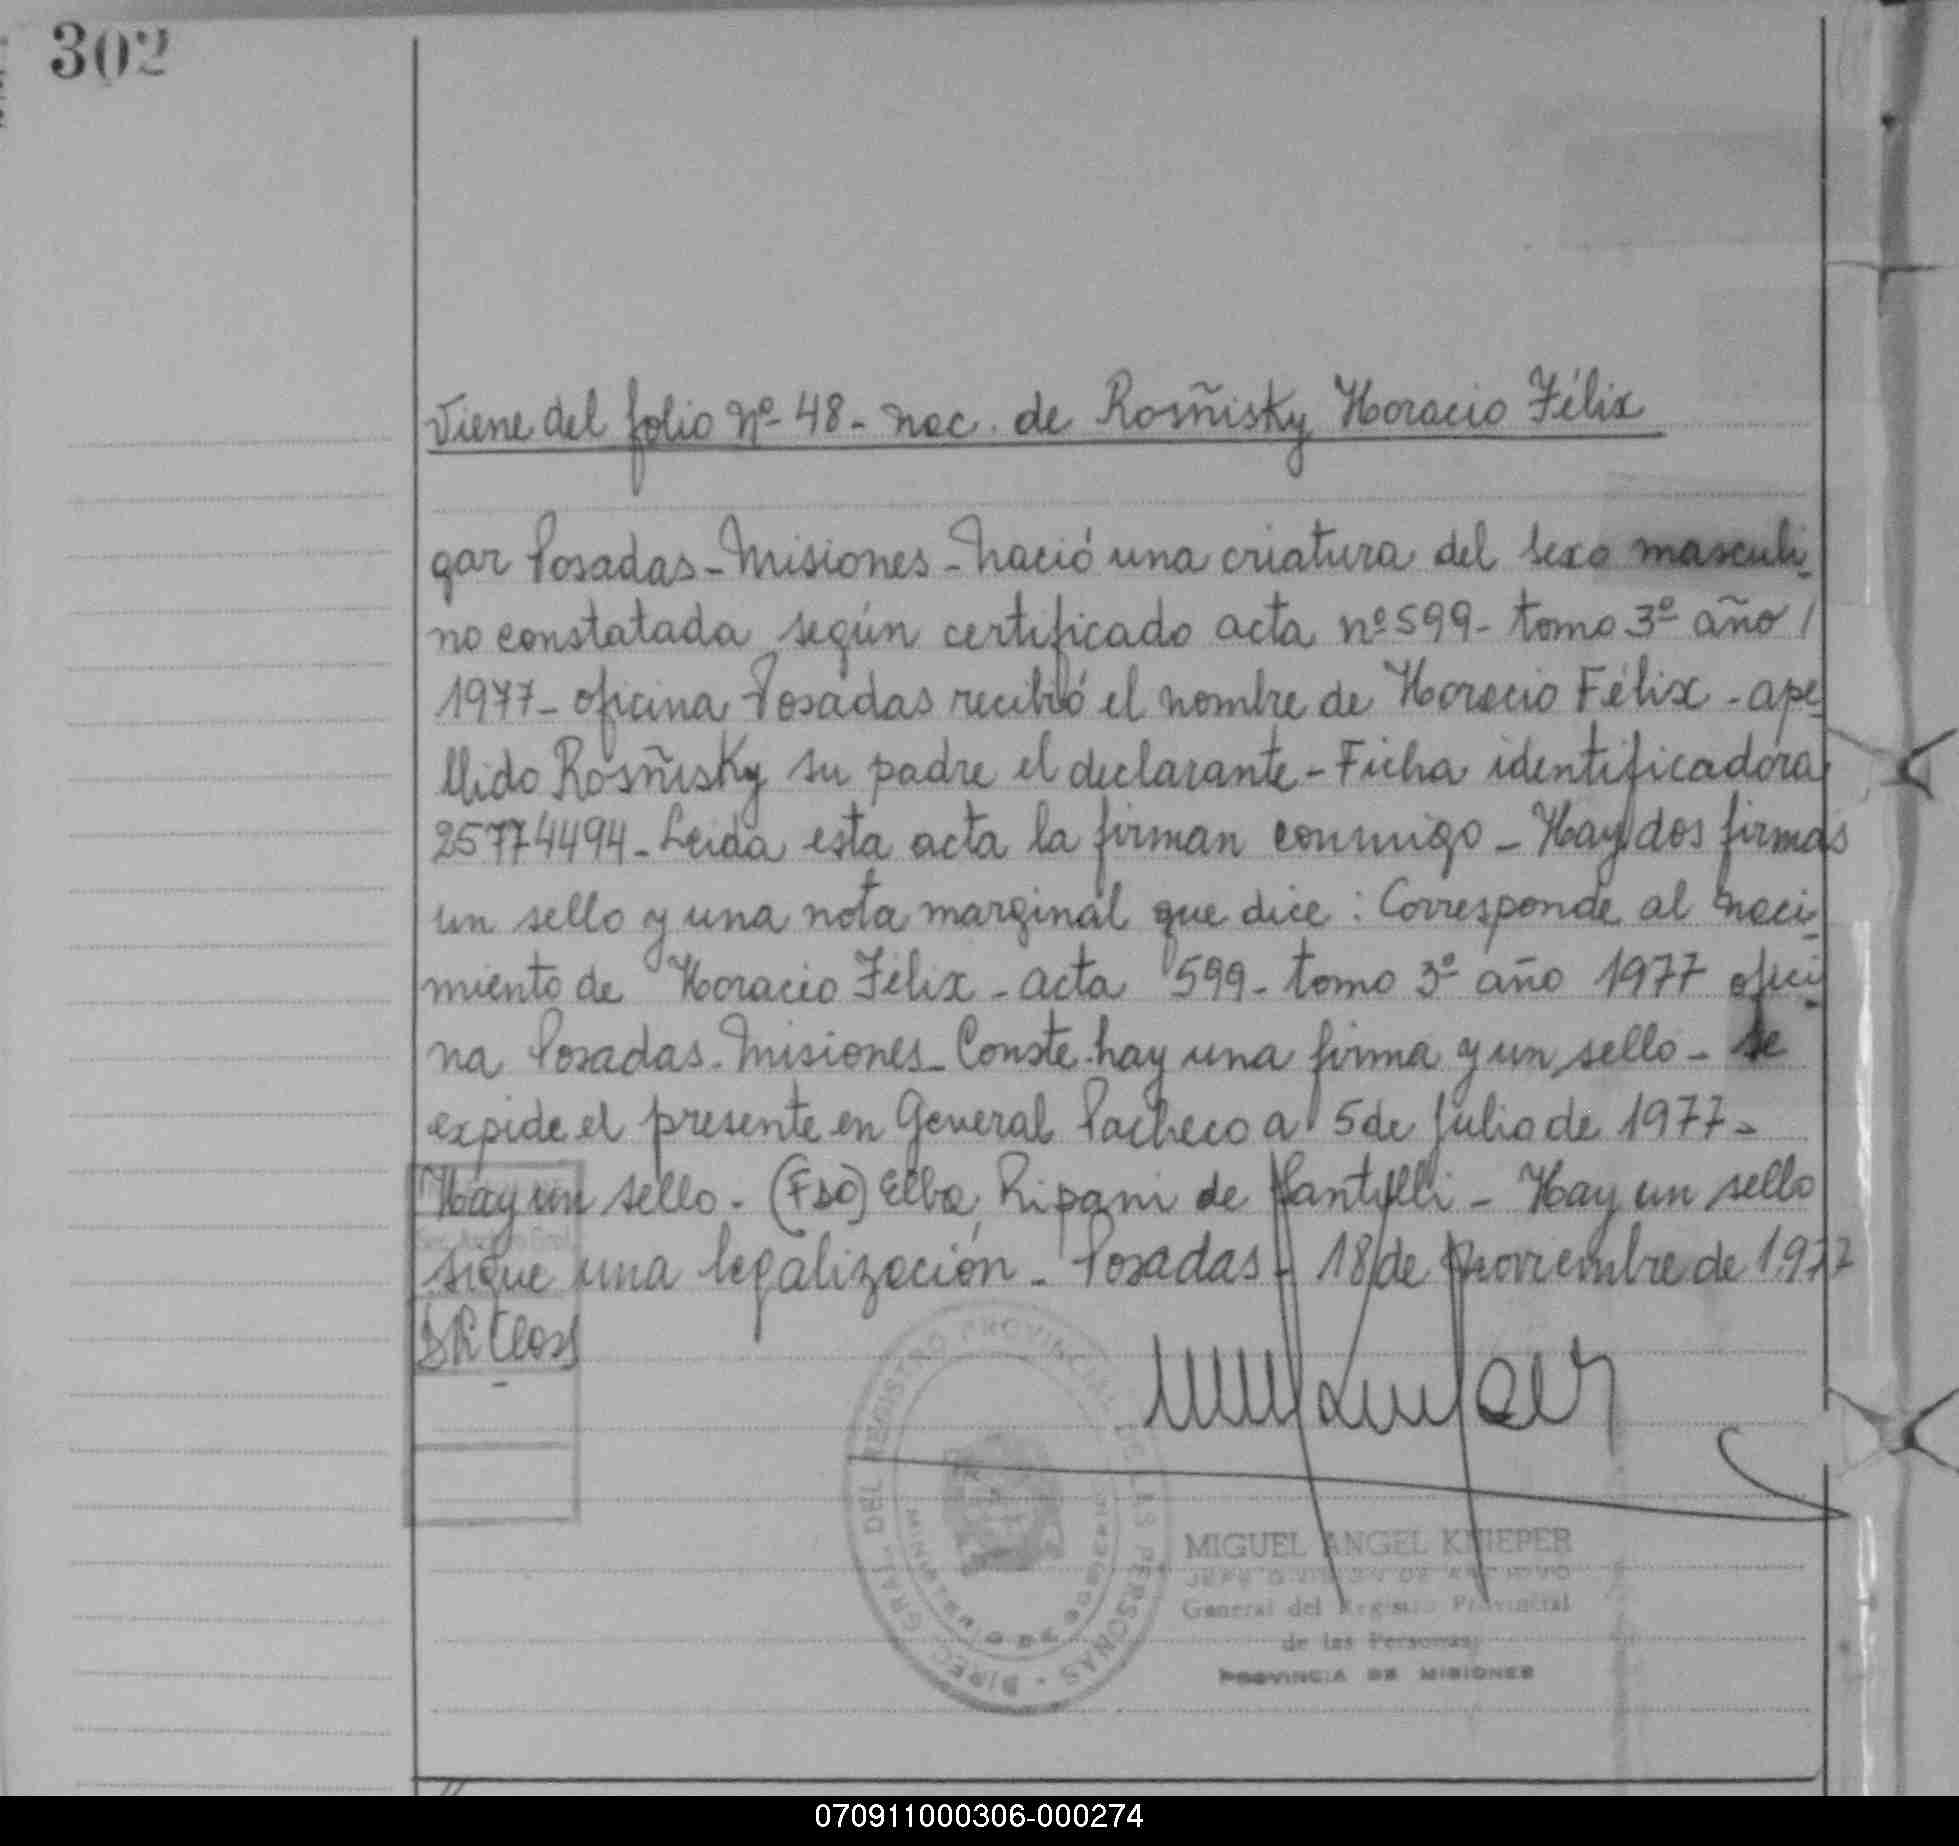 302
Viene del folio Nº 48 - nac. de Rosñisky Horacio Félix
gar Posadas - Misiones - Nació una criatura del sexo masculi-
no constatada según certificado acta nº 599 - tomo 3º año /
1977 - oficina Posadas recibió el nombre de Horacio Félix - ape-
llido Rosñisky su padre el declarante - Ficha identificadora
25774494 - Leida esta acta la firman conmigo - Hay dos firmas
un sello y una nota marginal que dice : Corresponde al naci-
miento de Horacio Félix - acta 599 - tomo 3º año 1977 ofici-
na Posadas - Misiones - Conste - hay una firma y un sello - se
expide el presente en General Pacheco a 5 de Julio de 1977 -
Hay un sello - (Fdo) Elba Ripani de - Hay un sello
sigue una legalización - Posadas - 18 de Noviembre de 1977
DIREC. GRAL. DEL REGISTRO PROVINCIAL DE LAS PERSONAS
MINISTERIO DE GOBIERNO
MIGUEL ANGEL KNIEPER
JEFE DIVISION DE ARCHIVO
General del Registro Provincial
de las Personas
PROVINCIA DE MISIONES
070911000306-000274